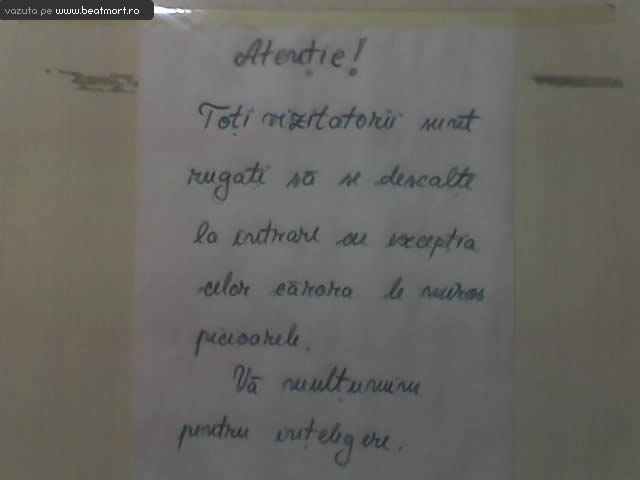 vazuta pe www.beatmort.ro
Atenție!
Toți vizitatorii sunt
rugați să se descalțe
la intrare cu excepția
celor cărora le miros
picioarele.
Vă mulțumim
pentru ințelegere.